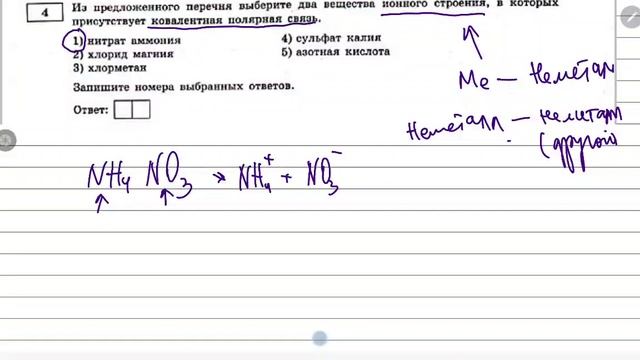 4 Из предложенного перечня выберите два вещества ионного строения, в которых
присутствует ковалентная полярная связь.
1) нитрат аммония 4) сульфат калия
2) хлорид магния 5) азотная кислота
3) хлорметан
Запишите номера выбранных ответов.
Ответ:
Me — неметал
Неметалл — неметалл
(другой
NH4 NO3 → NH4+ + NO3−